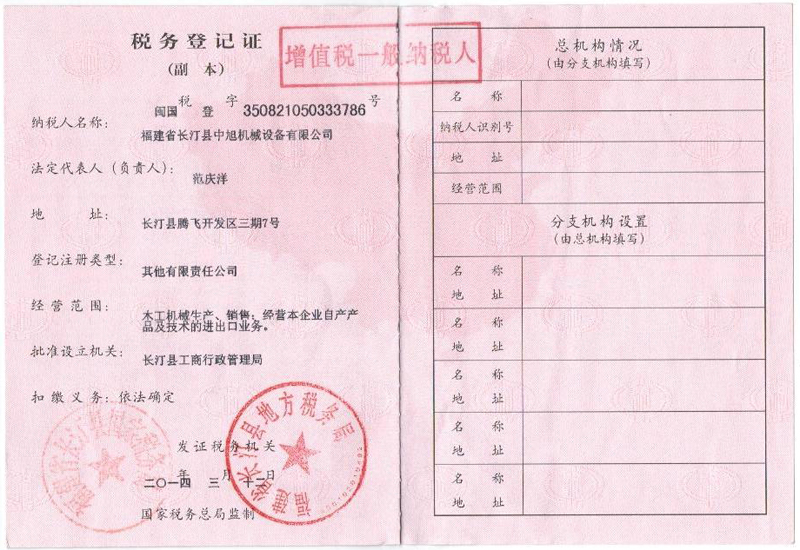 税务登记证
(副 本)
增值税一般纳税人
闽国 税 登 字 350821050333786 号
纳税人名称： 福建省长汀县中旭机械设备有限公司
法定代表人（负责人）： 范庆洋
地 址： 长汀县腾飞开发区三期7号
登记注册类型： 其他有限责任公司
经营范围： 木工机械生产、销售；经营本企业自产产
品及技术的进出口业务。
批准设立机关： 长汀县工商行政管理局
扣缴义务：依法确定
发证税务机关
二〇一四 年 三 月 十二 日
国家税务总局监制
福建省长汀县国家税务局
福建省长汀县地方税务局
总机构情况
(由分支机构填写)
名 称
纳税人识别号
地 址
经营范围
分支机构设置
(由总机构填写)
名 称
地 址
名 称
地 址
名 称
地 址
名 称
地 址
名 称
地 址